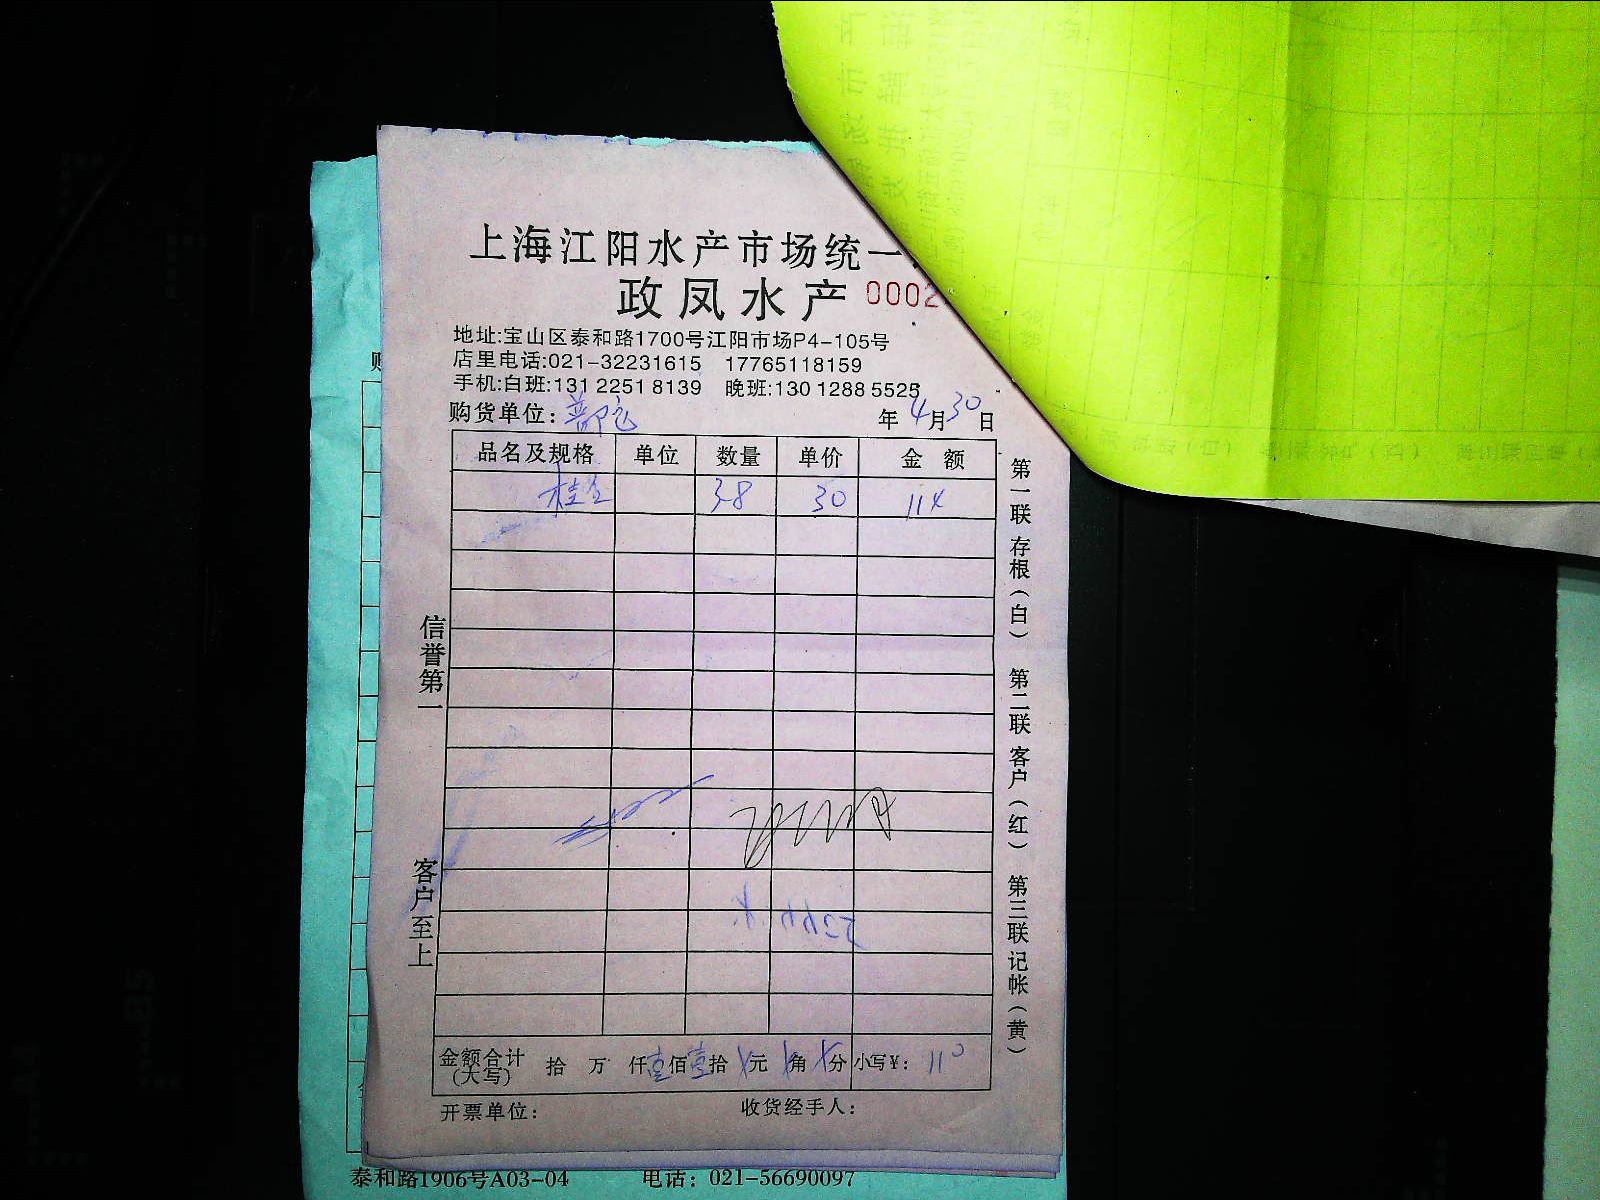 上海江阳水产市场统一
政凤水产 0002
地址:宝山区泰和路1700号江阳市场P4-105号
店里电话:021-32231615 17765118159
手机:白班:131 2251 8139 晚班:130 1288 5525
购货单位: 年 4月30日
品名及规格 单位 数量 单价 金 额
桂 38 30 114
信誉第一
客户至上
第一联 存根(白) 第二联 客户(红) 第三联 记帐(黄)
金额合计(大写) 拾 万 仟壹佰壹拾 元 角 分 小写¥: 110
开票单位: 收货经手人:
泰和路1906号A03-04 电话: 021-56690097